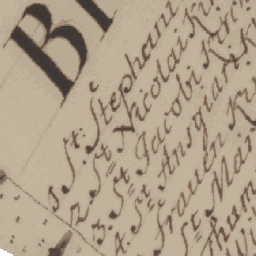 BI
1. St: Stephani
2. St= Nicolai Ki
3. St= Jacobi Kirc
4. St= Ansgari K
frauen Ki
St= Mar